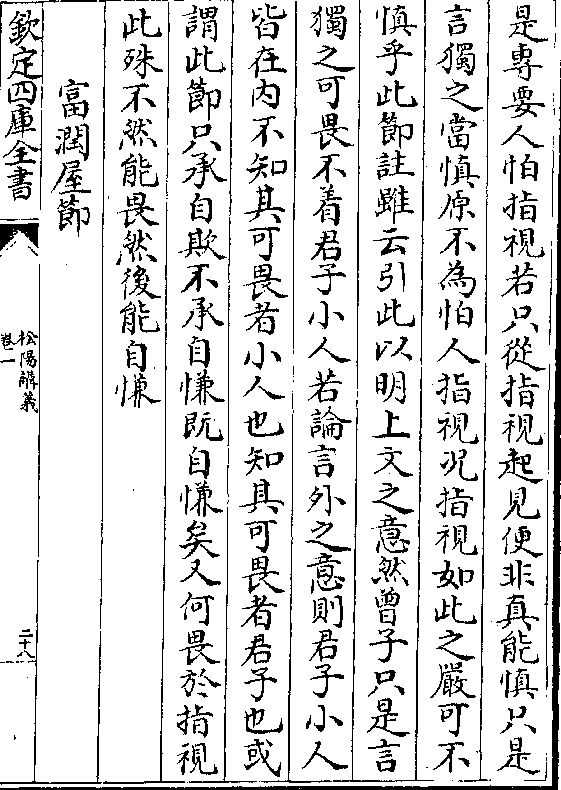 是專要人怕指視若只從指視起見便非真能慎只是
言獨之當慎原不為怕人指視况指視如此之嚴可不
慎乎此節註雖云引此以明上文之意然曾子只是言
獨之可畏不着君子小人若論言外之意則君子小人
皆在内不知其可畏者小人也知其可畏者君子也或
謂此節只承自欺不承自慊既自慊矣又何畏於指視
此殊不然能畏然後能自慊
富潤屋節
欽定四庫全書
松陽講義
卷一
二十八